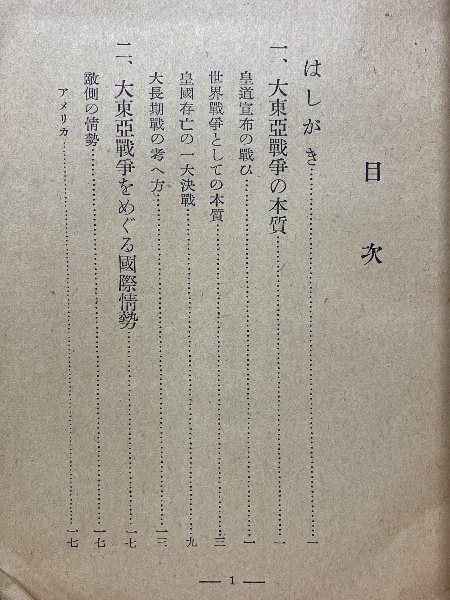 目次
はしがき……一
一、大東亞戰爭の本質……一
皇道宣布の戰ひ……一
世界戰爭としての本質……三
皇國存亡の一大決戰……九
大長期戰の考へ方……一三
二、大東亞戰爭をめぐる國際情勢……一七
敵側の情勢……一七
アメリカ……一七
— 1 —